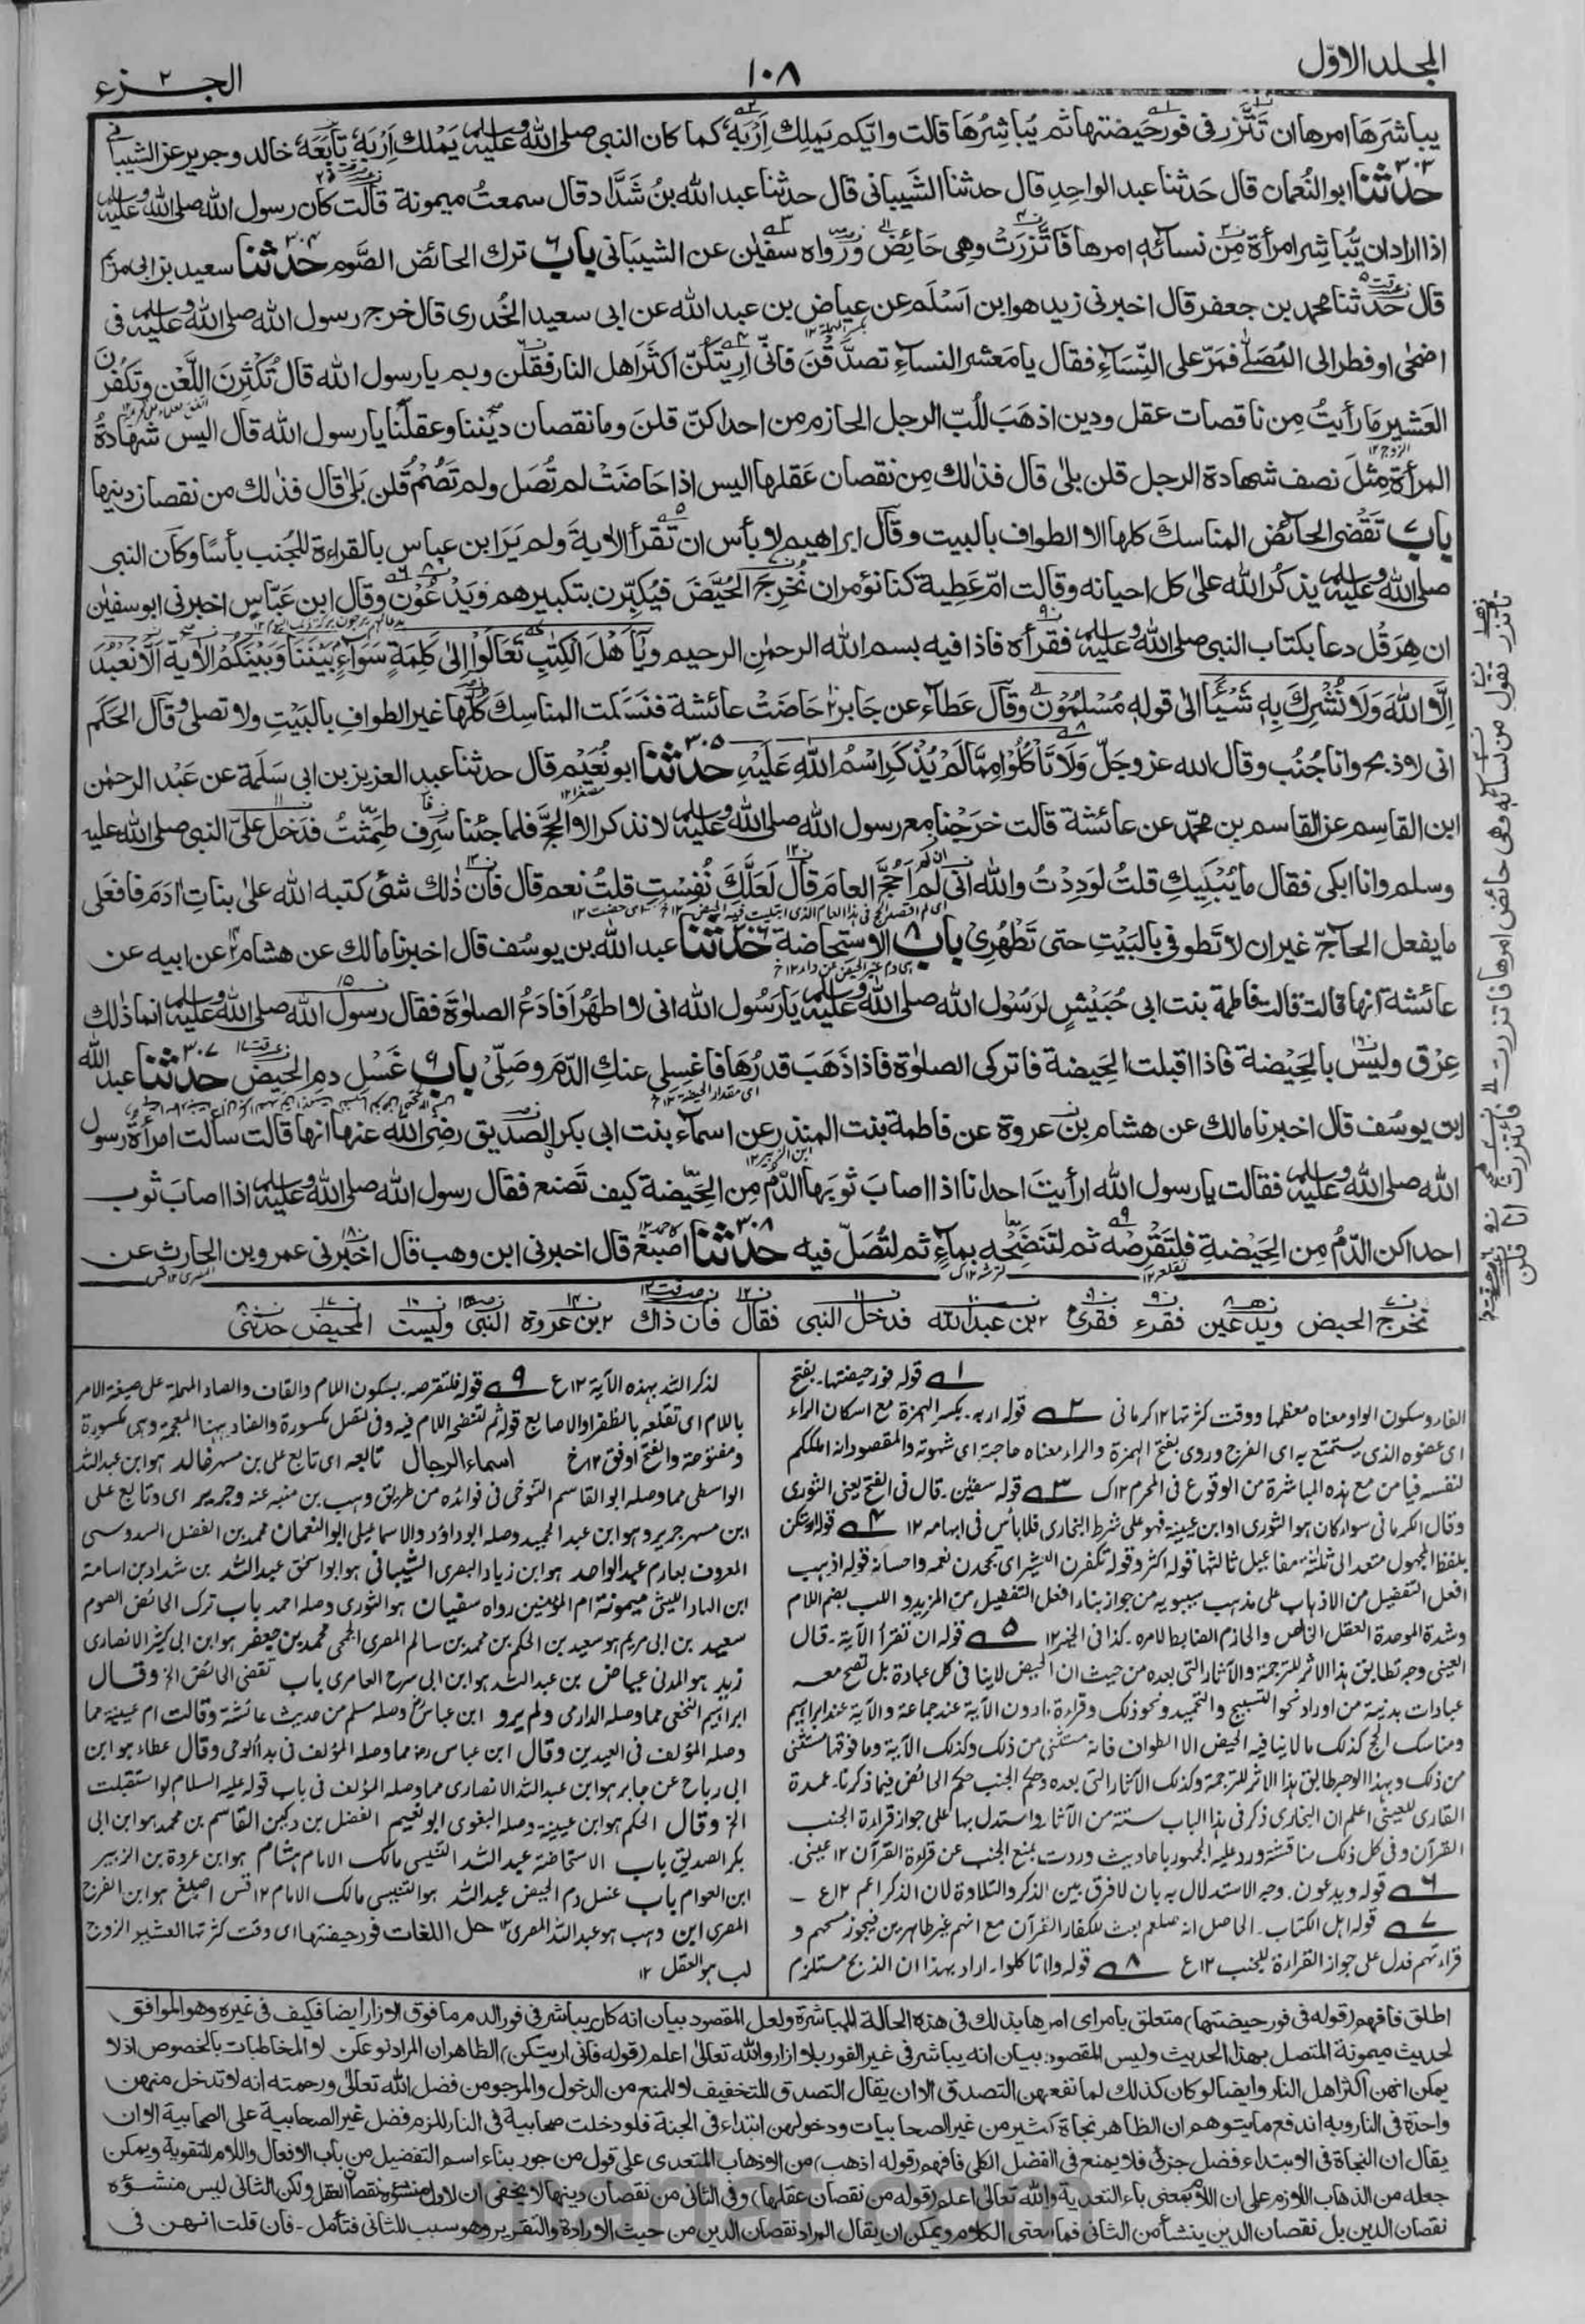 المجلد الاوّل
١٠٨
الجزء ٢
يباشرَها امرها ان تَتَّزر فى فور حَيضتها ثم يُباشِرُها قالت وايّكم يَملِك اِرْبَهٗ كما كان النبى صلى الله عليه وسلم يَمْلك اِرْبَهٗ تابَعَهٗ خالد وجرير عن الشيبانى
٣٠٣ حدثنا ابو النُعمان قال حَدثنا عبد الواحِد قال حدثنا الشَّيبانى قال حدثنا عبد الله بنُ شَدَّاد قال سمعتُ ميمونة قالت كان رسول الله صلى الله عليه وسلم
اذا اراد ان يُّباشِر امرأة مِّن نسائهٖ امرها فَاتَّزرَتْ وهى حَائِض ورَواه سفيٰن عن الشيبَانى باب ٦ ترك الحائض الصَّوم ٣٠٤ حدثنا سعيد بن ابى مريم
قال حَدثنا محمد بن جعفر قال اخبرنى زيد هو ابن اَسْلَم عن عياض بن عبد الله عن ابى سعيد الخُدرى قال خرج رسول الله صلى الله عليه وسلم فى
اضحٰى او فطر الى المُصَلّٰى فمَرّ على النِّسَاءِ فقال يا مَعشر النساءِ تصدَّقْنَ فانّى اُرِيتُكُنّ اكثَرَ اهل النار فقُلن وبم يا رسول الله قال تُكْثِرنَ اللَّعْن وتكفُرْنَ
العَشير مَا رأيتُ مِن ناقصات عقل ودين اذهَبَ لِلُبّ الرجل الحازم من احداكنّ قلنَ وما نقصان ديننا وعقلنا يا رسول الله قال اليس شهادةُ
المرأة مِثلَ نصف شهادة الرجل قلن بلىٰ قال فذٰلك مِن نقصان عَقلها اليس اذا حَاضَتْ لم تُصَل ولم تَصُمْ قُلن بَلىٰ قال فذٰلك من نقصان دينها
باب ٧ تَقْضى الحائض المناسكَ كلها الا الطواف بالبيت وقال ابراهيم لا بأس ان تَقرأ الاٰية ولم يَرَ ابن عباس بالقراءة للجُنب بأسًا وكان النبى
صلى الله عليه وسلم يذكُر الله على كل احيانه وقالت امّ عَطية كنا نؤمر ان نُخرِجَ الحُيَّضَ فيُكبّرن بتكبيرهم ويَدْعُوْن وقال ابن عبّاس اخبرنى ابو سفيٰن
ان هِرَقْل دعا بكتاب النبى صلى الله عليه وسلم فقرأه فاذا فيه بسم الله الرحمٰن الرحيم ويٰٓاَهْلَ الْكِتٰبِ تَعَالَوْا اِلىٰ كَلِمَةٍ سَوَآءٍ بَيْنَنَا وَبَيْنَكُمْ الاٰية اَلَّا نَعْبُدَ
اِلَّا اللهَ وَلَا نُشْرِكَ بِهٖ شَيْئًا الىٰ قولهٖ مُسْلِمُوْن وقال عَطاء عن جَابر حَاضَتْ عائشة فنَسَكت المناسِك كُلَّها غير الطوافِ بالبَيْتِ ولا تصلى وقال الحَكَم
انى لاذبح وانا جُنُب وقال الله عز وجَلّ وَلَا تَأْكُلُوْا مِمَّا لَمْ يُذْكَرِ اسْمُ اللهِ عَلَيْهِ ٣٠٥ حدثنا ابو نُعَيْم قال حدثنا عبد العزيز بن ابى سَلَمة عن عَبْد الرحمٰن
ابن القاسِم عن القاسِم بن محمّد عن عائشة قالت خرَجْنا مع رسول الله صلى الله عليه وسلم لا نذكر الا الحجّ فلما جئنا سَرِف طَمِثْتُ فدَخل علىّ النبى صلى الله عليه
وسلم وانا ابكى فقال ما يُبْكيكِ قلتُ لَوَدِدْتُ والله انى لم اَحُجّ العامَ قال لَعَلَّكِ نُفِسْتِ قلتُ نعم قال فان ذٰلك شئ كتبه الله علىٰ بناتِ اٰدَمَ فافعَلى
ما يفعل الحآجّ غير ان لا تطوفى بالبَيْتِ حتى تَطْهُرِى باب ٨ الاستحاضة ٣٠٦ حدثنا عبد الله بن يوسُف قال اخبرنا مالك عن هشام عن ابيه عن
عائشة انها قالت قالت فاطمة بنت ابى حُبَيْشٍ لرَسُول الله صلى الله عليه وسلم يا رَسُول الله انى لا اطهُرُ اَفادَعُ الصلوٰة فقال رسول الله صلى الله عليه وسلم انما ذٰلك
عِرْق وليْس بالحَيْضة فاذا اقبلت الحَيضة فاتركى الصلوٰة فاذا ذَهَبَ قدرُهَا فاغسِلى عنكِ الدّم وصَلّىْ باب ٩ غَسْل دم الحيض ٣٠٧ حدثنا عبد الله
ابن يوسُف قال اخبرنا مالك عن هشام بن عروة عن فاطمة بنت المنذر عن اسماء بنت ابى بكر الصديق رضى الله عنها انها قالت سألت امرأة رسول
الله صلى الله عليه وسلم فقالت يا رسول الله ارأيتَ احدانا اذا اصابَ ثوبَها الدّمُ مِن الحَيضة كيف تَصْنع فقال رسول الله صلى الله عليه وسلم اذا اصابَ ثوب
احداكن الدّمُ مِن الحَيْضةِ فلتَقْرصْه ثم لتَنضَحْه بماءٍ ثم لتُصَلّ فيه ٣٠٨ حدثنا اصبَغ قال اخبرنى ابن وهب قال اخبرنى عمرو بن الحارث عن
تخرج الحيض ويدعين فقرء فقرئ ابن عبد الله فدخل النبى فقال فان ذاك ابن عروة النبى وليست المحيض حدثنى
١ قوله فور حيضتها۔ بفتح
الفاء وسكون الواو معناه معظمها ووقت كثرتها ١٢ كرمانى ٢ قوله اربه۔ بكسر الهمزة مع اسكان الراء
اى عضوه الذى يستمتع به اى الفرج وروى بفتح الهمزة والراء معناه حاجته اى شهوته والمقصود انه املككم
لنفسه فيامن مع هذه المباشرة من الوقوع فى المحرم ١٢ ك ٣ قوله سفيٰن۔ قال فى الفتح يعنى الثورى
وقال الكرمانى سواء كان هو الثورى او ابن عيينة فهو على شرط البخارى فلا بأس فى ابهامه ١٢ ٤ قوله اريتكن
بلفظ المجهول متعد الى ثلثة مفاعيل ثالثها قوله اكثر وقوله تكفرن العشير اى تجحدن نعمه واحسانه قوله اذهب
افعل التفضيل من الاذهاب على مذهب سيبويه من جواز بناء افعل التفضيل من المزيد و اللب بضم اللام
وشدة الموحدة العقل الخالص والحازم الضابط لامره۔ كذا فى الخير ١٢ ٥ قوله ان تقرأ الآية۔ قال
العينى وجه تطابق هذا الاثر للترجمة والآثار التى بعده من حيث ان الحيض لا ينافى كل عبادة بل تصح معه
عبادات بدنية من اوراد نحو التسبيح والتحميد ونحو ذلك وقراءة ما دون الآية عند جماعة والآية عند ابراهيم
ومناسك الحج كذلك ما لا ينافيه الحيض الا الطواف فانه مستثنى من ذلك وكذلك الآية وما فوقها مستثنى
من ذلك وبهذا الوجه طابق هذا الاثر للترجمة وكذلك الآثار التى بعده وحكم الجنب حكم الحائض فيما ذكرنا۔ عمدة
القارى للعينى اعلم ان البخارى ذكر فى هذا الباب ستة من الآثار واستدل بها على جواز قراءة الجنب
القرآن وفى كل ذلك مناقشة ورد عليه الجمهور باحاديث وردت بمنع الجنب عن قراءة القرآن ١٢ عينى۔
٦ قوله ويدعون۔ وجه الاستدلال به بان لا فرق بين الذكر والتلاوة لان الذكر اعم ١٢ ع
٧ قوله اهل الكتاب۔ الحاصل انه صلعم بعث للكفار القرآن مع انهم غير طاهرين فيجوز مسهم و
قراءتهم فدل على جواز القراءة للجنب ١٢ ع ٨ قوله ولا تاكلوا۔ اراد بهذا ان الذبح مستلزم
لذكر الله بهذه الآية ١٢ ع ٩ قوله فلتقرصه۔ بسكون اللام والقاف والصاد المهملة على صيغة الامر
باللام اى تقلعه بالظفر او الاصابع قوله ثم لتنضحه اللام فيه
ومفتوحة والفتح اوفق ١٢ خ اسماء الرجال تابعه اى تابع على بن مسهر خالد هو ابن عبد الله
الواسطى مما وصله ابو القاسم التنوخى فى فوائده من طريق وهب بن منبه عنه وجرير اى وتابع على
ابن مسهر جرير وهو ابن عبد الحميد وصله ابو داؤد والاسماعيلى ابو النعمان محمد بن الفضل السدوسى
المعروف بعارم عبد الواحد هو ابن زياد البصرى الشيبانى هو ابو اسحٰق عبد الله بن شداد بن اسامة
ابن الهاد الليثى ميمونة ام المؤمنين رواه سفيان هو الثورى وصله احمد باب ترك الحائض الصوم
سعيد بن ابى مريم هو سعيد بن الحكم بن محمد بن سالم المصرى الجمحى محمد بن جعفر هو ابن ابى كثير الانصارى
زيد هو المدنى عياض بن عبد الله هو ابن ابى سرح العامرى باب تقضى الحائض الخ وقال
ابراهيم النخعى مما وصله الدارمى ولم ير و ابن عباس وصله مسلم من حديث عائشة وقالت ام عطية مما
وصله المؤلف فى العيدين وقال ابن عباس مما وصله المؤلف فى بدأ الوحى وقال عطاء هو ابن
ابى رباح عن جابر هو ابن عبد الله الانصارى مما وصله المؤلف فى باب قوله عليه السلام لو استقبلت
الخ وقال الحكم هو ابن عيينة وصله البغوى ابو نعيم الفضل بن دكين القاسم بن محمد هو ابن ابى
بكر الصديق باب الاستحاضة عبد الله التنيسى مالك الامام هشام هو ابن عروة بن الزبير
ابن العوام باب غسل دم الحيض عبد الله هو التنيسى مالك الامام ١٢ قس اصبغ هو ابن الفرج
المصرى ابن وهب هو عبد الله المصرى ١٢ حل اللغات فور حيضتها اى وقت كثرتها العشير الزوج
لب هو العقل ١٢
اطلق فافهم (قوله فى فور حيضتها) متعلق بامر اى امرها بذلك فى هذه الحالة للمباشرة ولعل المقصود بيان انه كان يباشر فى فور الدم ما فوق الازار ايضا فكيف فى غيره وهو الموافق
لحديث ميمونة المتصل بهذا الحديث وليس المقصود بيان انه يباشر فى غير الفور بلا ازار والله تعالىٰ اعلم (قوله فانى اريتكن) الظاهر ان المراد نوعكن لا المخاطبات بالخصوص اذ لا
يمكن انهن اكثر اهل النار وايضا لو كان كذلك لما نفعهن التصدق الا ان يقال التصدق للتخفيف لا للمنع من الدخول والمرجو من فضل الله تعالىٰ ورحمته انه لا تدخل منهن
واحدة فى النار وبه اندفع ما يتوهم ان الظاهر نجاة كثير من غير الصحابيات ودخولهن ابتداء فى الجنة فلو دخلت صحابية فى النار للزم فضل غير الصحابية على الصحابية الا ان
يقال ان النجاة فى الابتداء فضل جزئى فلا يمنع فى الفضل الكلى فافهم (قوله اذهب) من الاذهاب المتعدى على قول من جوز بناء اسم التفضيل من باب الافعال واللام للتقوية ويمكن
جعله من الذهاب اللازم على ان اللام بمعنى باء التعدية والله تعالىٰ اعلم (قوله من نقصان عقلها) وفى الثانى من نقصان دينها لا يخفى ان الاول منشؤه نقصان العقل ولكن الثانى ليس منشؤه
نقصان الدين بل نقصان الدين ينشأ من الثانى فما معنى الكلام ويمكن ان يقال المراد نقصان الدين من حيث الارادة والتقرير وهو سبب للثانى فتأمل۔ فان قلت انهن فى